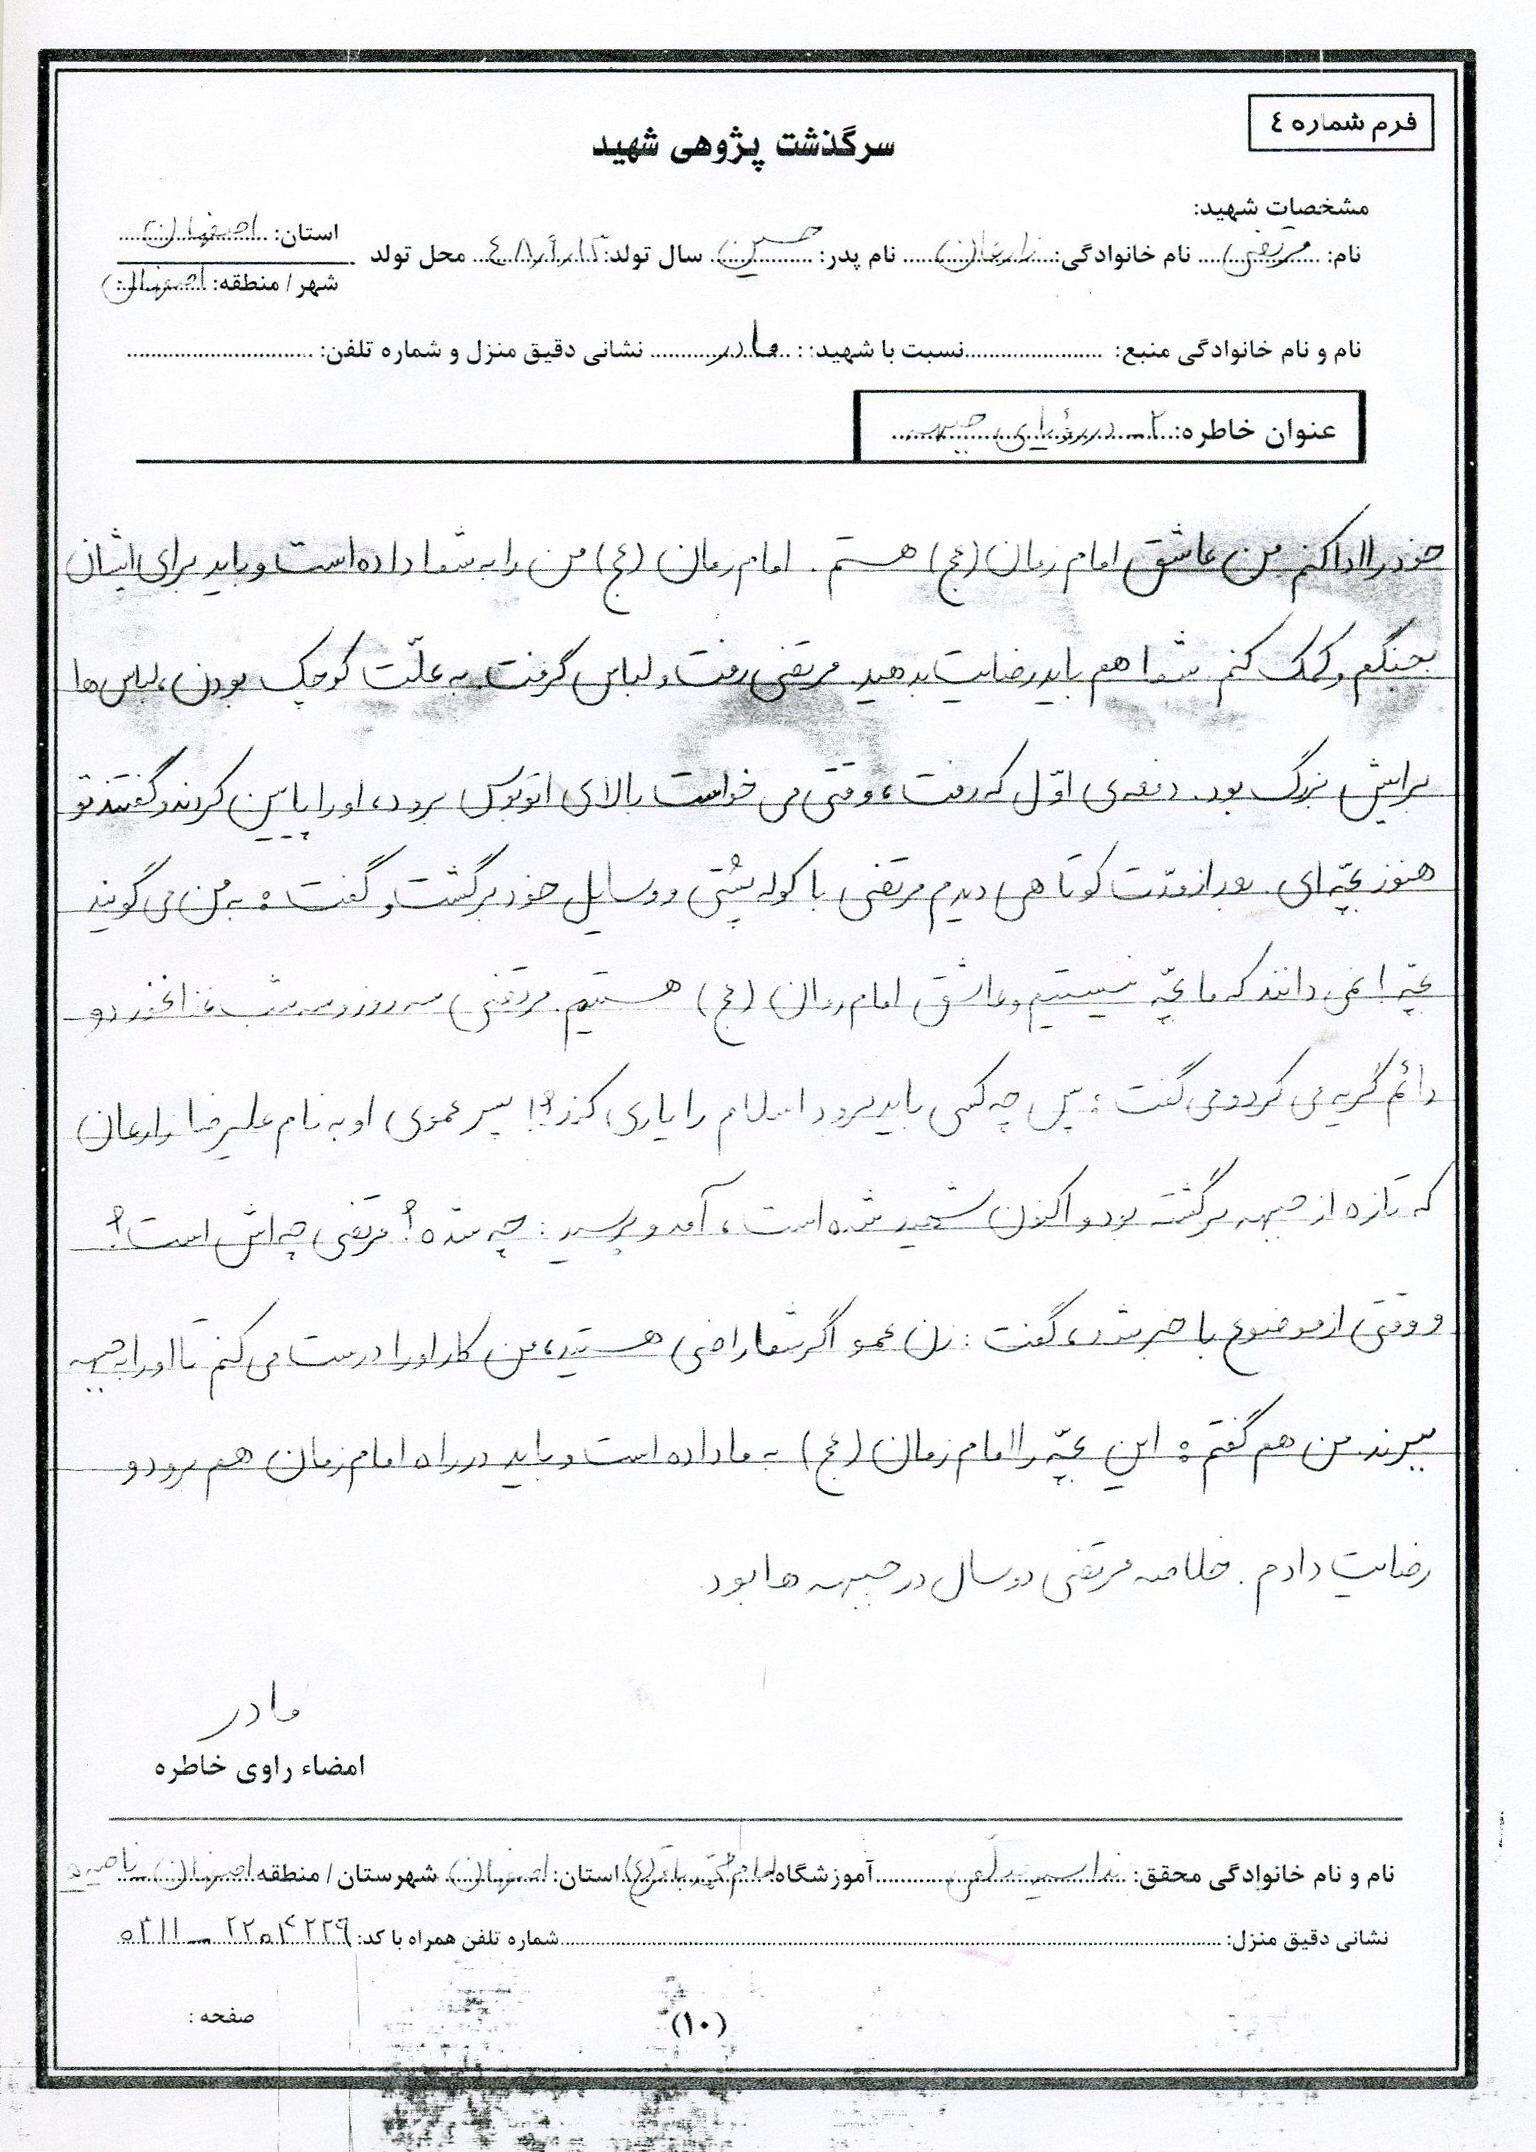 فرم شماره ٤
سرگذشت پژوهی شهید
مشخصات شهید:
نام: مرتضی نام خانوادگی: زارعان نام پدر: حسین سال تولد: محل تولد
استان: اصفهان
شهر / منطقه: اصفهان
نام و نام خانوادگی منبع: نسبت با شهید: مادر نشانی دقیق منزل و شماره تلفن:
عنوان خاطره: ۲- در رؤیای جبهه
خود را ادا کنم من عاشق امام زمان (عج) هستم. امام زمان (عج) من را به شما داده است و باید برای ایشان
بجنگم و کمک کنم. شما هم باید رضایت بدهید. مرتضی رفت و لباس گرفت. به علّت کوچک بودن، لباس ها
برایش بزرگ بود. دفعه ی اوّل که رفت، وقتی می خواست بالای اتوبوس برود، او را پایین کردند و گفتند تو
هنوز بچّه ای. بعد از مدّت کوتاهی دیدم مرتضی با کوله پُشتی و وسایل خود برگشت و گفت: به من می گویند
بچّه! نمی دانند که ما بچّه نیستیم و عاشق امام زمان (عج) هستیم. مرتضی سه روز و سه شب غذا نخورد و
دائم گریه می کرد و می گفت: پس چه کسی باید برود اسلام را یاری کند؟! پسر عموی او به نام علیرضا زارعان
که تازه از جبهه برگشته بود و اکنون شهید شده است، آمد و پرسید: چه شده؟ مرتضی چه اش است؟
و وقتی از موضوع با خبر شد، گفت: زن عمو اگر شما راضی هستید، من کار او را درست می کنم تا او را به جبهه
ببرند. من هم گفتم: این بچّه را امام زمان (عج) به ما داده است و باید در راه امام زمان هم برود و
رضایت دادم. خلاصه مرتضی دو سال در جبهه ها بود.
مادر
امضاء راوی خاطره
نام و نام خانوادگی محقق: آموزشگاه: امام محمد باقر (ع) استان: اصفهان شهرستان / منطقه اصفهان ناحیه ۵
نشانی دقیق منزل: شماره تلفن همراه با کد:
(۱۰)
صفحه :